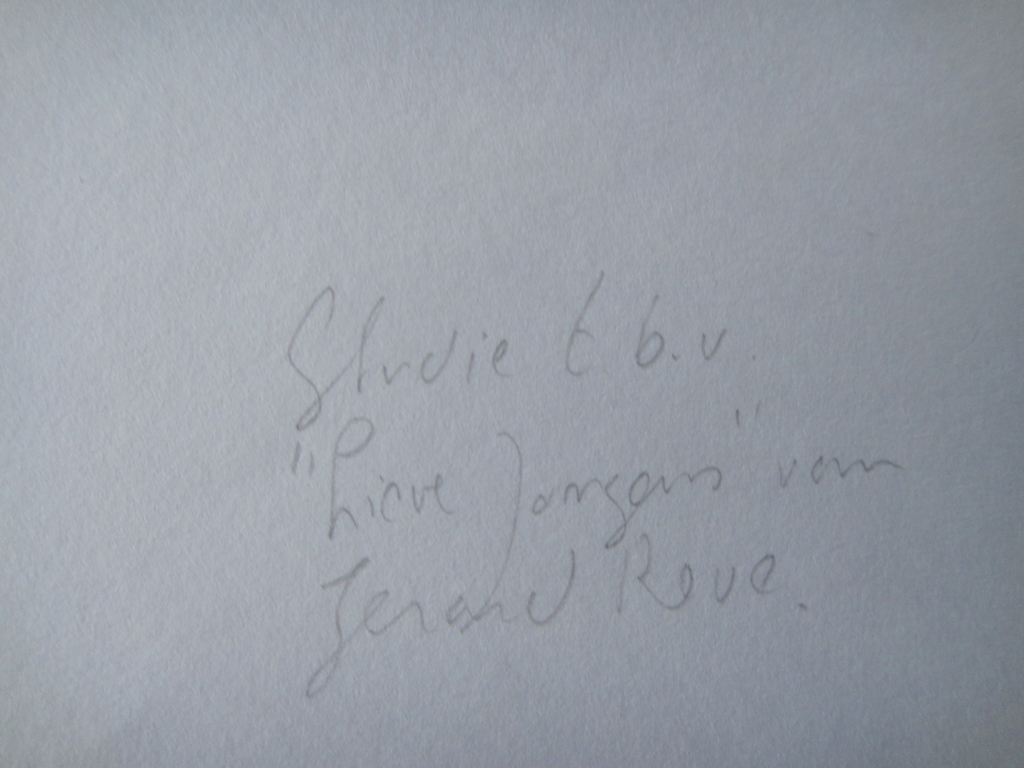 Studie t b.v.
"Lieve Jongens" van
Gerard Reve.